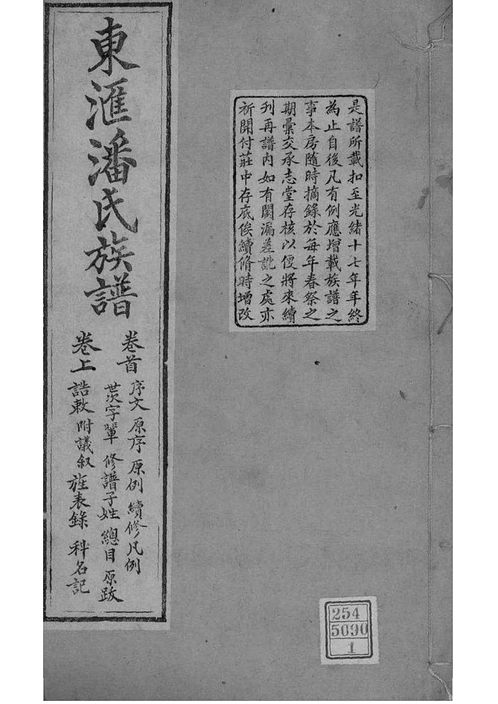 東滙潘氏族譜
卷首
序文 原序 原例 續修凡例
世次字輩 修譜子姓 總目 原跋
卷上
誥敕 附議叙 旌表錄 科名記
是譜所載扣至光緒十七年年終
為止自後凡有例應增載族譜之
事本房隨時摘錄於每年春祭之
期彙交承志堂存核以便將來續
刊再譜内如有闕漏差訛之處亦
祈開付莊中存底俟續修時增改
254
5090
1